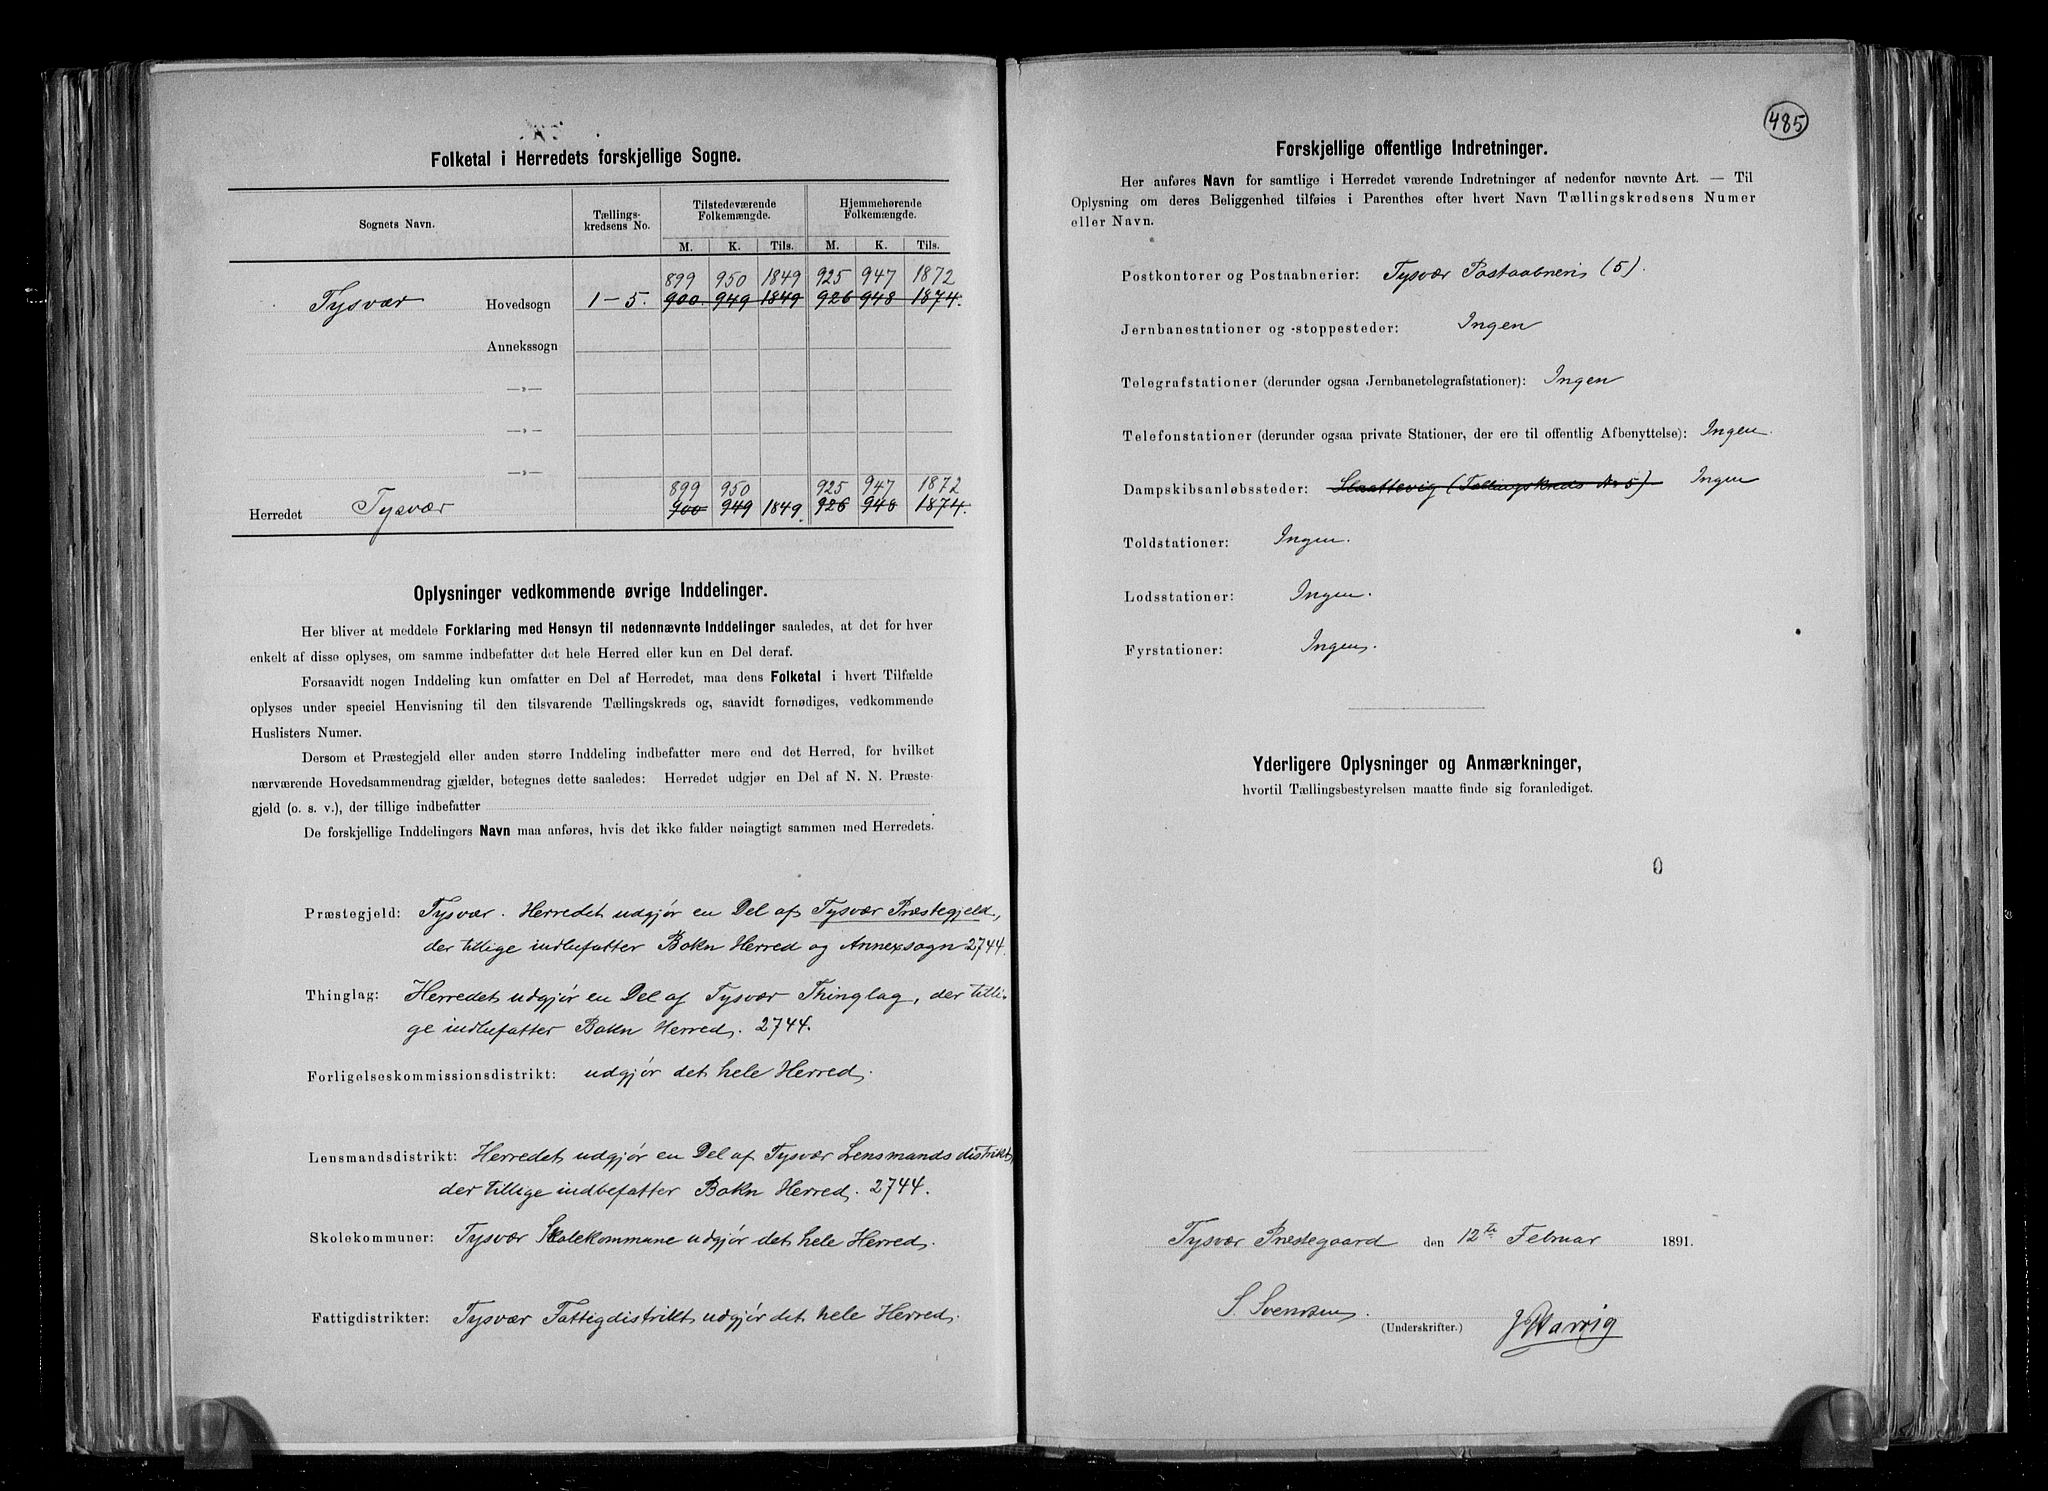 Folketal i Herredets forskjellige Sogne.
Sognets Navn. Tællings-kredsens No. Tilstedeværende Folkemængde. Hjemmehørende Folkemængde.
M. K. Tils. M. K. Tils.
899 950 1849 925 947 1872
Tysvær Hovedsogn 1-5. 900. 949 1849 926 948 1874.
Annekssogn
—»—
—»—
—»—
899 950 925 947 1872
Herredet Tysvær 900 949 1849. 926 948 1874.
Oplysninger vedkommende øvrige Inddelinger.
Her bliver at meddele Forklaring med Hensyn til nedennævnte Inddelinger saaledes, at det for hver
enkelt af disse oplyses, om samme indbefatter det hele Herred eller kun en Del deraf.
Forsaavidt nogen Inddeling kun omfatter en Del af Herredet, maa dens Folketal i hvert Tilfælde
oplyses under speciel Henvisning til den tilsvarende Tællingskreds og, saavidt fornødiges, vedkommende
Huslisters Numer.
Dersom et Præstegjeld eller anden større Inddeling indbefatter mere end det Herred, for hvilket
nærværende Hovedsammendrag gjælder, betegnes dette saaledes: Herredet udgjør en Del af N. N. Præste-
gjeld (o. s. v.), der tillige indbefatter
De forskjellige Inddelingers Navn maa anføres, hvis det ikke falder nøiagtigt sammen med Herredets.
Præstegjeld: Tysvær. Herredet udgjør en Del af Tysvær Præstegjeld,
der tillige indbefatter Bokn Herred og Annexsogn 2744.
Thinglag: Herredet udgjør en Del af Tysvær Thinglag, der tilli-
ge indbefatter Bokn Herred. 2744.
Forligelseskommissionsdistrikt: udgjør det hele Herred.
Lensmandsdistrikt: Herredet udgjør en Del af Tysvær Lensmandsdistrikt,
der tillige indbefatter Bokn Herred. 2744.
Skolekommuner: Tysvær Skolekommune udgjør det hele Herred.
Fattigdistrikter: Tysvær Fattigdistrikt udgjør det hele Herred.
485
Forskjellige offentlige Indretninger.
Her anføres Navn for samtlige i Herredet værende Indretninger af nedenfor nævnte Art. — Til
Oplysning om deres Beliggenhed tilføies i Parenthes efter hvert Navn Tællingskredsens Numer
eller Navn.
Postkontorer og Postaabnerier: Tysvær Postaabneri (5).
Jernbanestationer og -stoppesteder: Ingen
Telegrafstationer (derunder ogsaa Jernbanetelegrafstationer): Ingen
Telefonstationer (derunder ogsaa private Stationer, der ere til offentlig Afbenyttelse): Ingen.
Dampskibsanløbssteder: Slaattevig (Tællingskreds No 5) Ingen
Toldstationer: Ingen.
Lodsstationer: Ingen.
Fyrstationer: Ingen.
Yderligere Oplysninger og Anmærkninger,
hvortil Tællingsbestyrelsen maatte finde sig foranlediget.
0
Tysvær Præstegaard den 12te Februar 1891.
S. Svendsen.
(Underskrifter.)